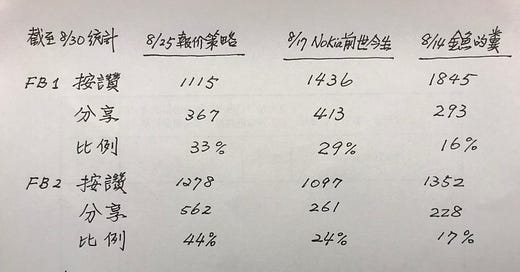 截至8/30統計 8/25報价策略 8/17 Nokia前世今生 8/14金魚的糞
FB1 按讚 1115 1436 1845
分享 367 413 293
比例 33% 29% 16%
FB2 按讚 1278 1097 1352
分享 562 261 228
比例 44% 24% 17%